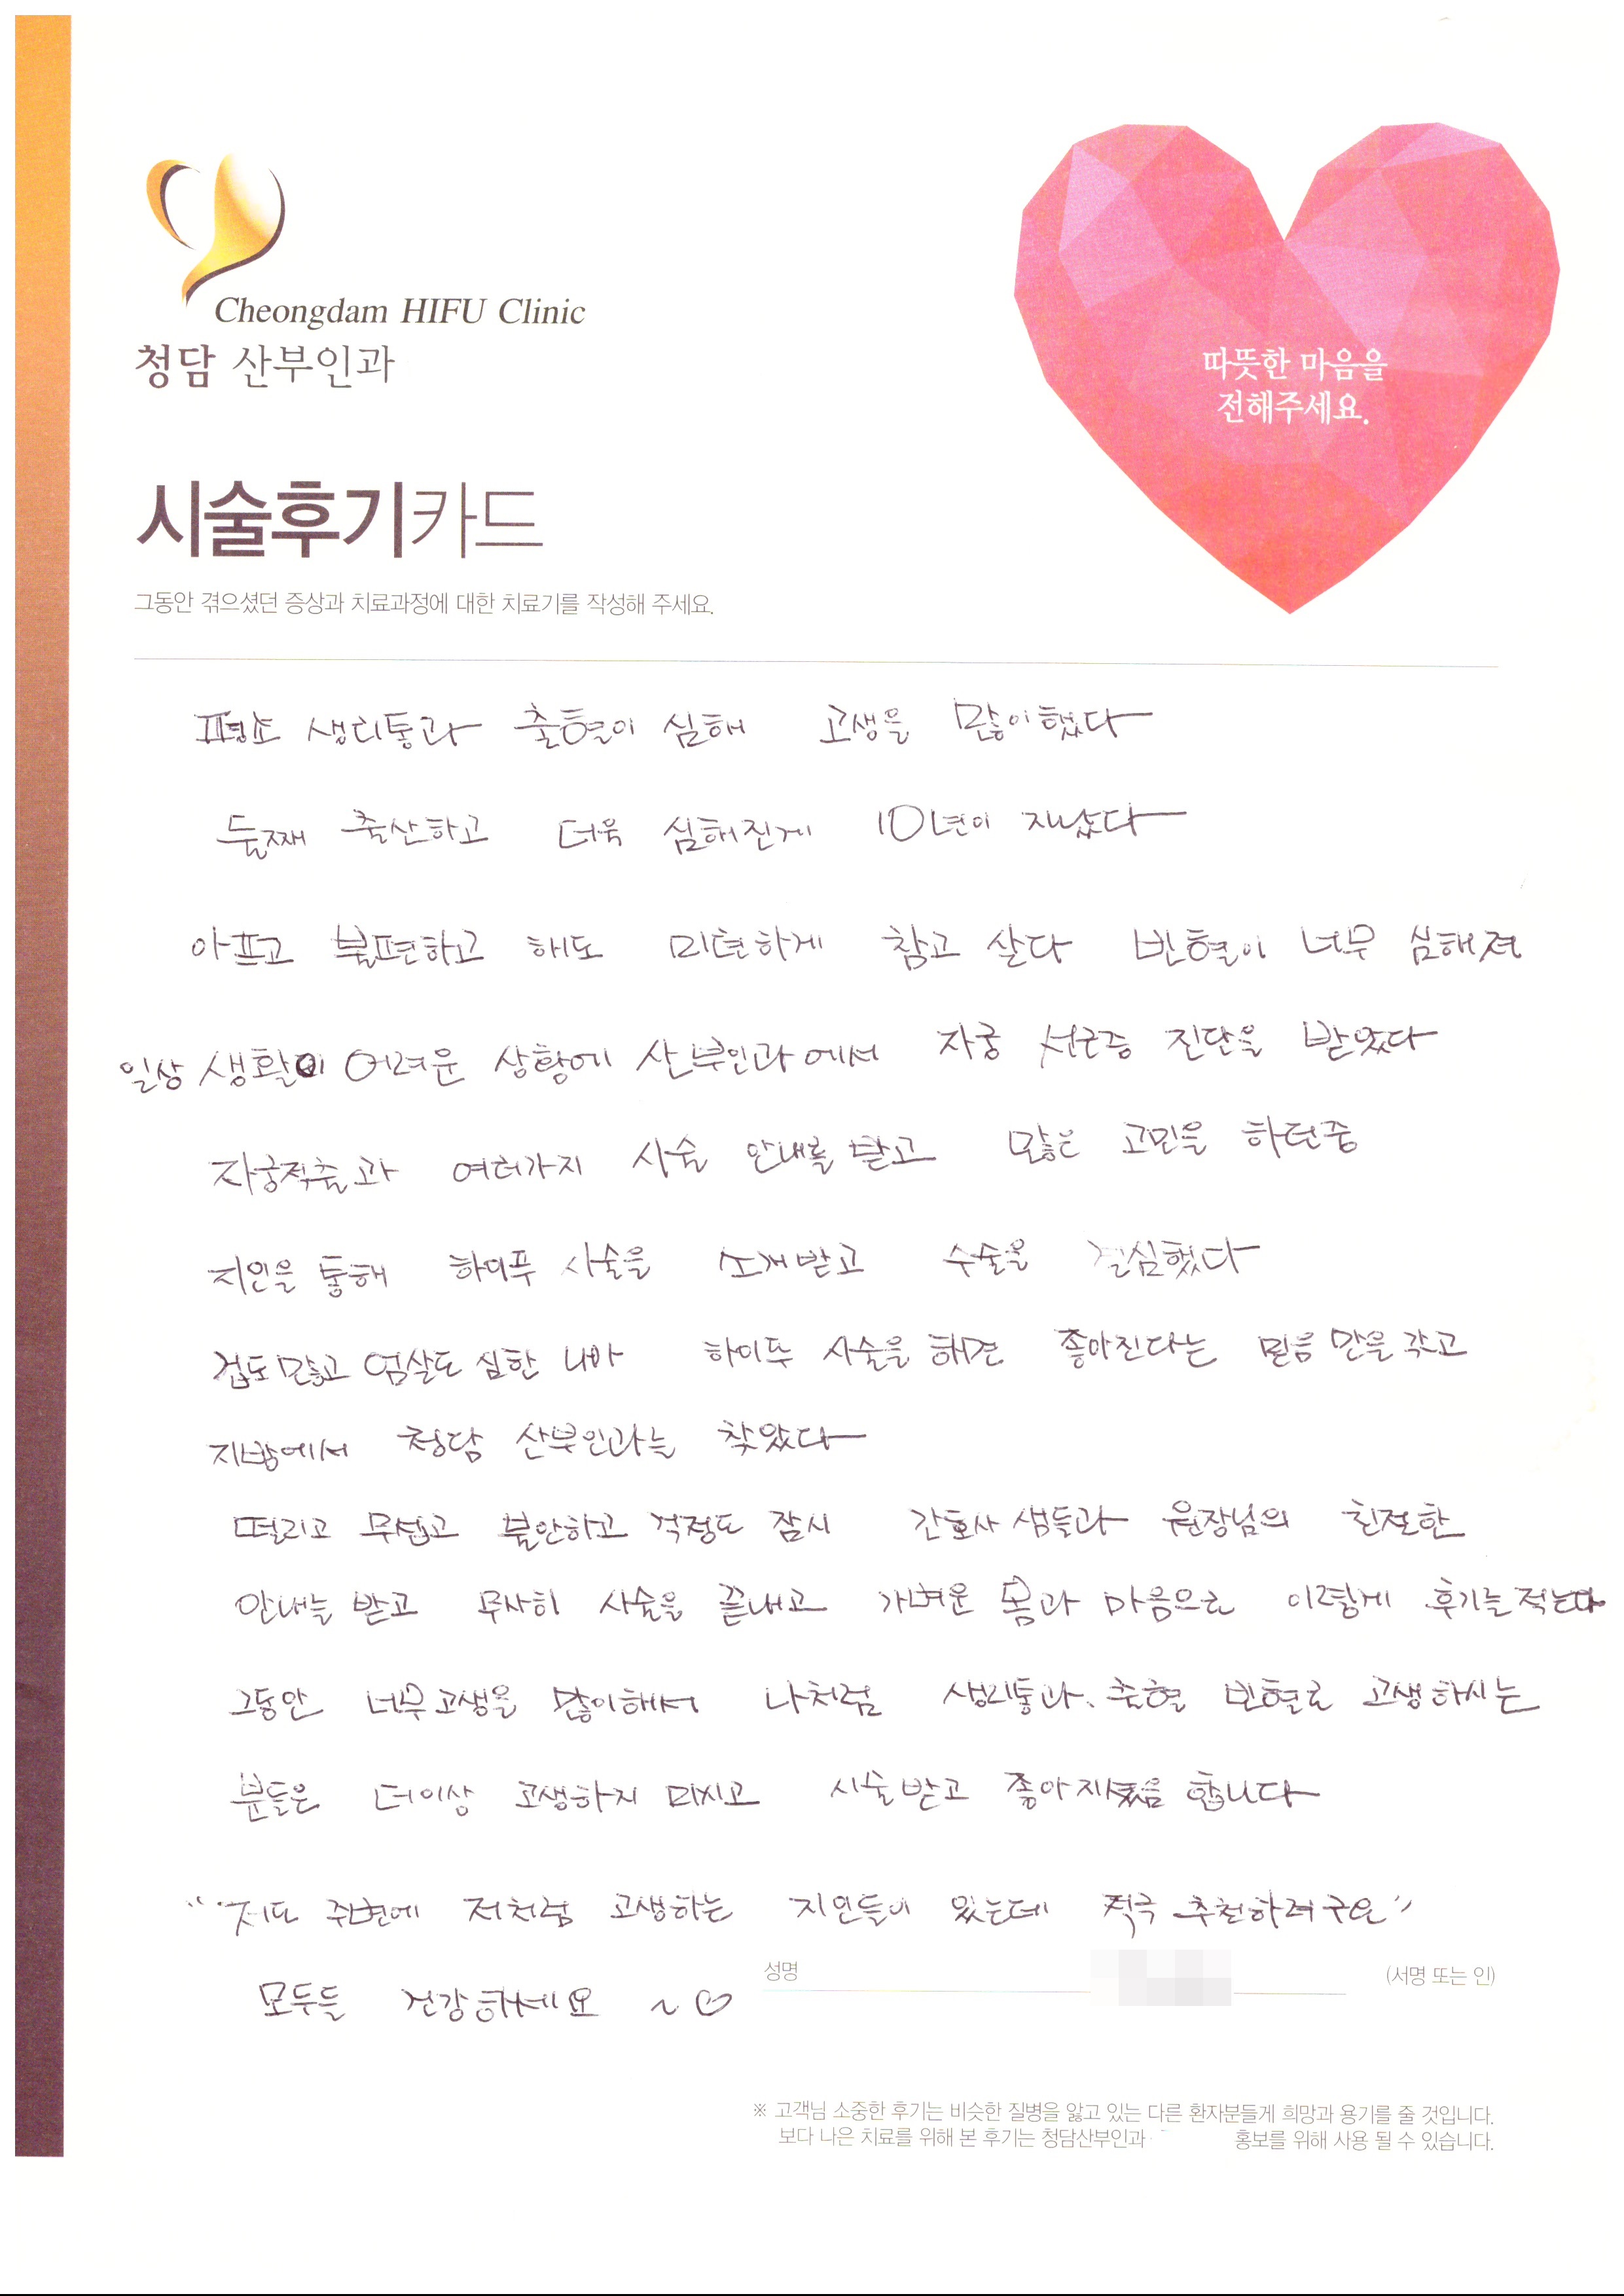 Cheongdam HIFU Clinic
청담 산부인과
따뜻한 마음을
전해주세요.
시술후기카드
그동안 겪으셨던 증상과 치료과정에 대한 치료기를 작성해 주세요.
평소 생리통과 출혈이 심해 고생을 많이했다
둘째 출산하고 더욱 심해진게 10년이 지났다
아프고 불편하고 해도 미련하게 참고 살다 빈혈이 너무 심해져
일상 생활이 어려운 상황에 산부인과에서 자궁 선근증 진단을 받았다
자궁적출과 여러가지 시술 안내를 받고 많은 고민을 하던중
지인을 통해 하이푸 시술을 소개받고 수술을 결심했다
겁도많고 엄살도 심한 나야 하이푸 시술을 하면 좋아진다는 믿음 만을 갖고
지방에서 청담 산부인과를 찾았다
떨리고 무섭고 불안하고 걱정도 잠시 간호사 샘들과 원장님의 친절한
안내를 받고 무사히 시술을 끝내고 가벼운 몸과 마음으로 이렇게 후기를 적는다
그동안 너무고생을 많이해서 나처럼 생리통과. 출혈 빈혈로 고생하시는
분들은 더이상 고생하지 마시고 시술받고 좋아지셨음 합니다
"저도 주변에 저처럼 고생하는 지인들이 있는데 적극 추천하려구요"
성명 (서명 또는 인)
모두들 건강하세요 ~♡
※ 고객님 소중한 후기는 비슷한 질병을 앓고 있는 다른 환자분들게 희망과 용기를 줄 것입니다.
보다 나은 치료를 위해 본 후기는 청담산부인과 홍보를 위해 사용 될 수 있습니다.